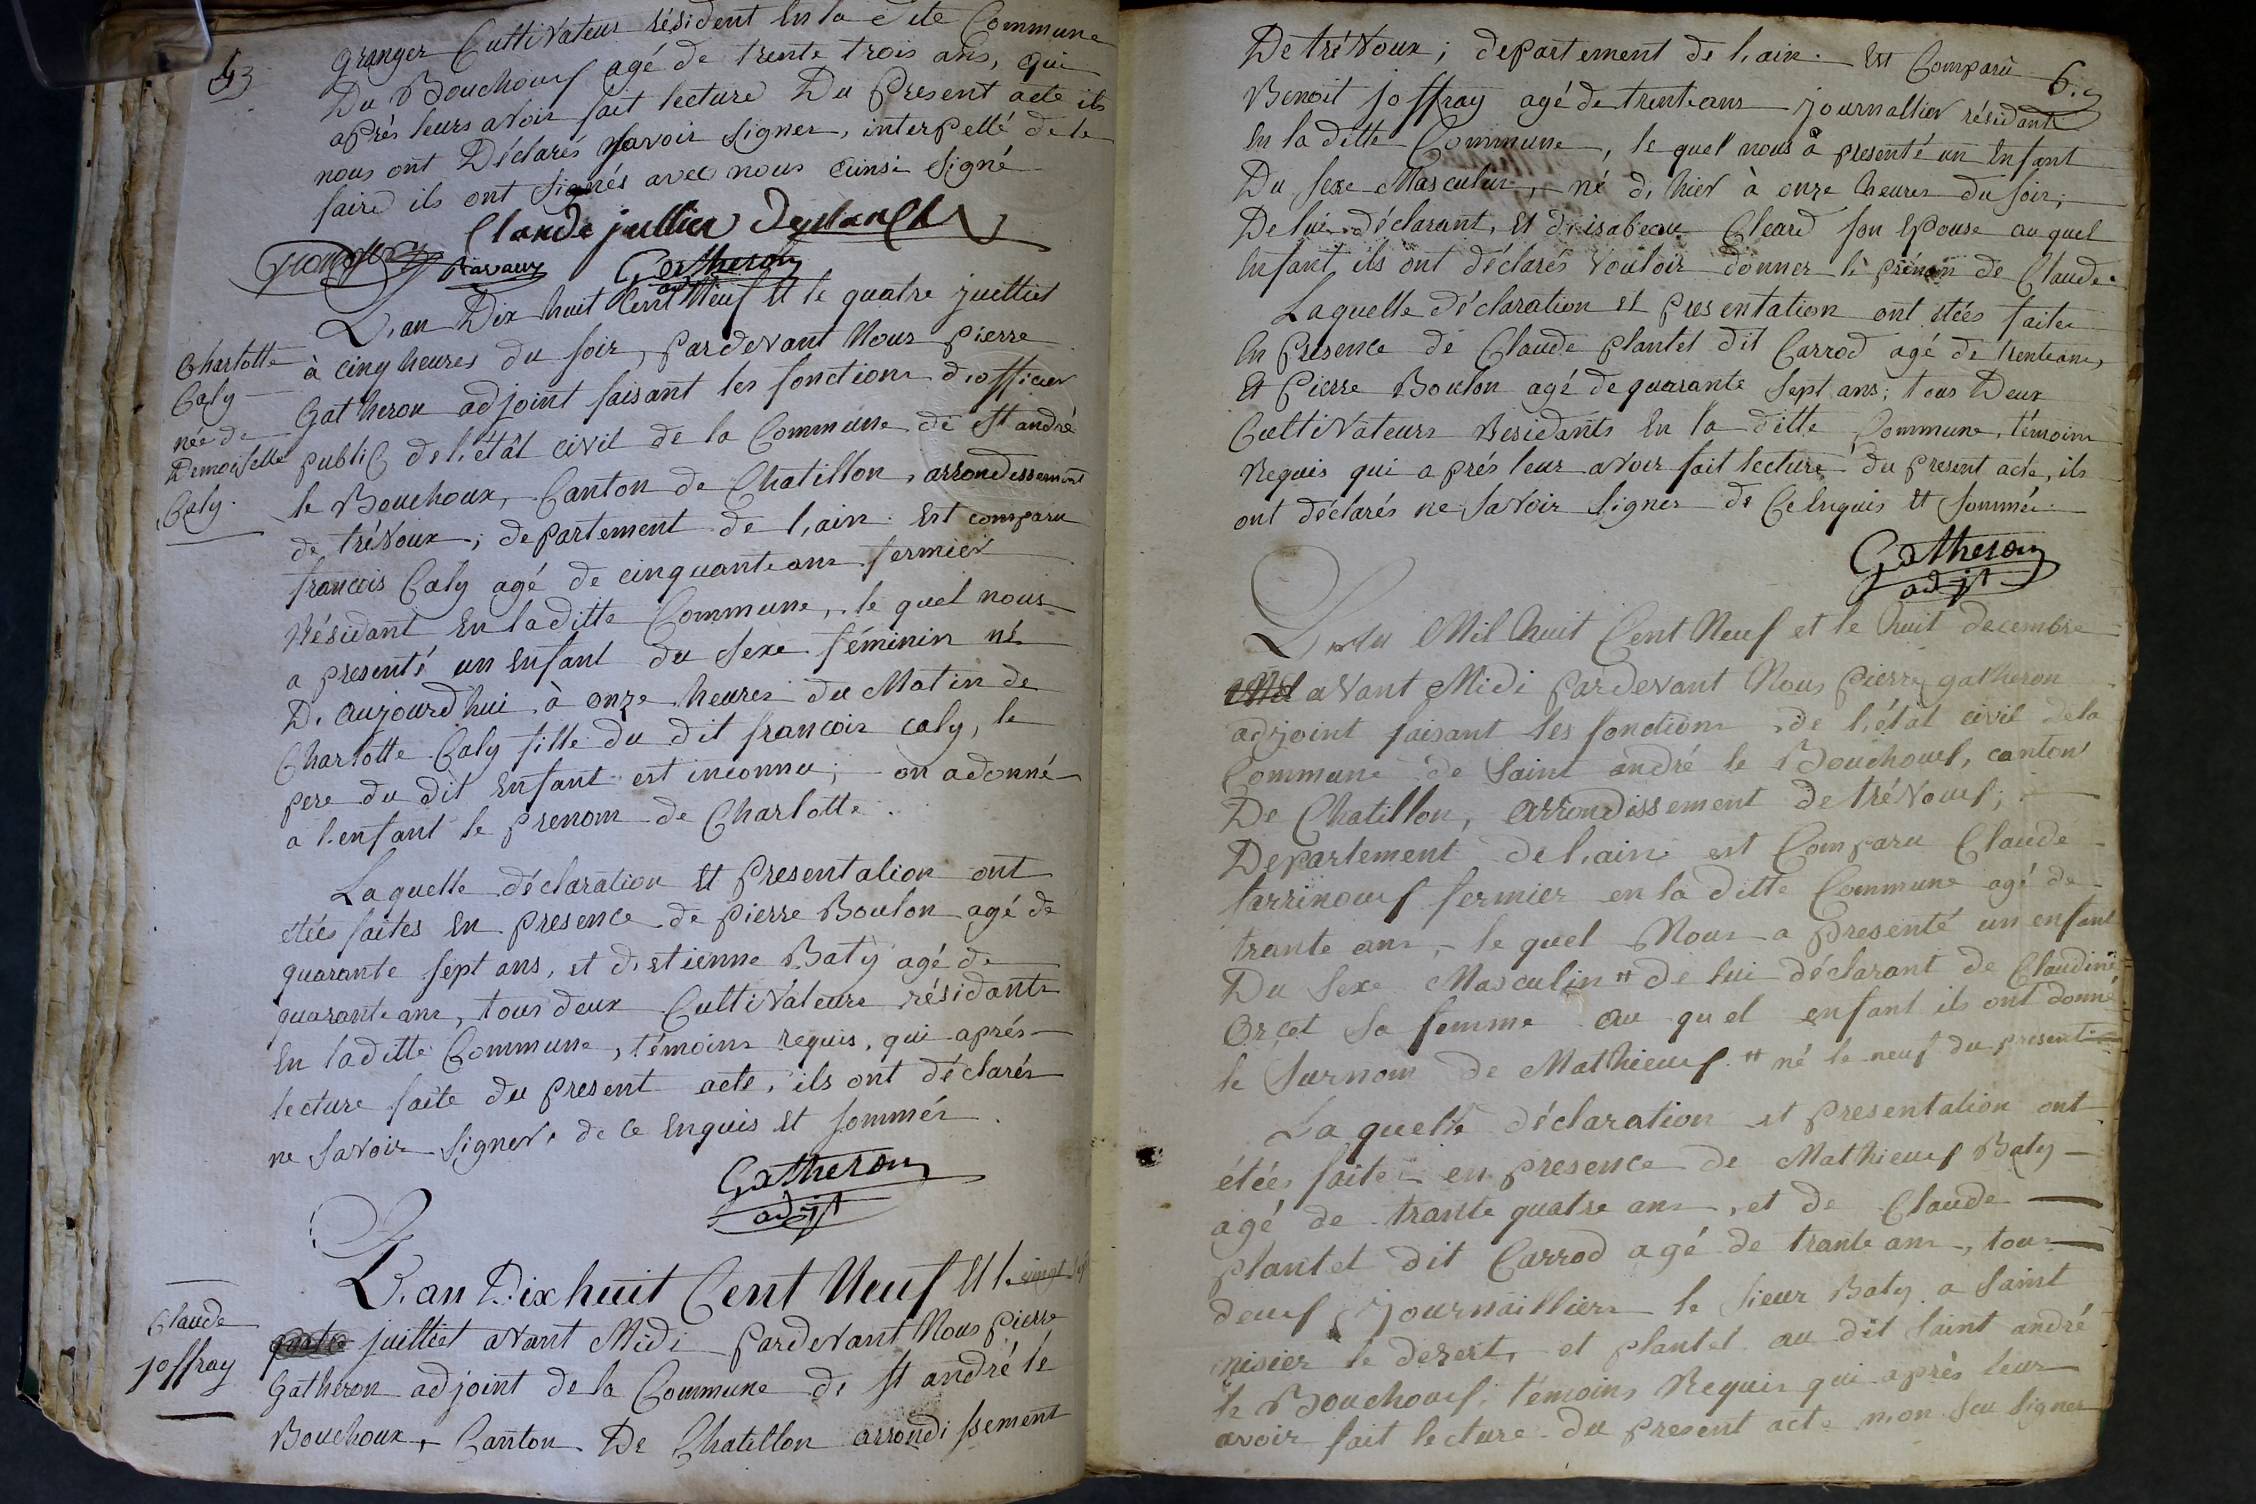 43
granger Cultivateur résident En la dite Commune
Du Bouchouf agé de trente trois ans, qui
aprés leurs avoir fait lecture Du Present acte ils
nous ont Déclarés savoir signer, interpellé de le
faire ils ont signés avec nous ainsi signé
Claude jullien Desplanche
ravaux Gatheron
adjt
L'an Dix huit Cent Neuf Et le quatre juilliet
Charlotte
Caly
née de
Demoiselle
Caly.
à cinq heures du soir, pardevant Nous pierre
Gatheron adjoint faisant les fonctions d'officier
public de l'état civil de la Commune de St andré
le Bouchoux, Canton de Chatillon, arrondissement
de trévoux; departement de l'ain. Est comparu
francois Caly agé de cinquante ans fermier
Résidant En la ditte Commune, le quel nous
a presenté un Enfant du sexe féminin né
D'aujourd'hui à onze heures du Matin de
Charlotte Caly fille du dit francois caly, le
pere du dit Enfant est inconnu; on a donné
a l'enfant le prenom de Charlotte.
Laquelle déclaration Et Presentation ont
étées faites En presence de pierre Boulon agé de
quarante sept ans, et d'etienne Baty agé de
quarante ans, tous deux Cultivateurs résidants
En la ditte Commune, témoins requis, qui aprés
lecture faite du present acte, ils ont déclarés
ne savoir signer, de ce Enquis Et sommés
Gatheron
adjt
L'an Dix huit Cent Neuf Et le vingt
Claude
joffray
juilliet avant Midi pardevant Nous pierre
Gatheron adjoint de la Commune de St andré le
Bouchoux, Canton De Chatillon arrondissement
6.
De trévoux; departement de l'ain. Est Comparu
Benoit joffray agé de trente ans journallier résidant
En la ditte Commune, le quel nous a presenté un Enfant
Du sexe Masculin, né d'hier à onze heures du soir;
De lui déclarant, Et d'isabeau Cleard son Epouse au quel
Enfant ils ont déclarés vouloir donner le prénom de Claude.
Laquelle déclaration et presentation ont étées faites
En Presence de Claude plantet dit Carrod agé de trente ans,
Et Pierre Boulon agé de quarante sept ans; tous Deux
Cultivateurs Residants En la ditte Commune, témoins
Requis qui aprés leur avoir fait lecture du present acte, ils
ont déclarés ne savoir signer de Ce Enquis Et sommés.
Gatheron
adjt
L'an Mil huit Cent Neuf et le huit decembre
avant Midi pardevant Nous pierre gatheron
adjoint faisant les fonctions de l'état civil de la
Commune de saint andré le Bouchouf, canton
De Chatillon, arrondissement de trévouf;
Departement de l'ain est Comparu Claude
fermier en la ditte Commune agé de
trante ans, le quel Nous a Presenté un enfant
Du sexe Masculin # de lui déclarant de Claudine
Orcet sa femme au quel enfant ils ont donné
le surnom de Mathieuf. # né le neuf du present
La quelle déclaration et presentation ont
étées faites en presence de Mathieuf Baty
agé de trante quatre ans, et de Claude
plantet dit Carrod agé de trante ans, tous
deuf journailliers le sieur Baty a saint
nisier le desert, et plantet au dit saint andré
le Bouchouf; témoins Requis qui aprés leur
avoir fait lecture du present acte n'on seu signer